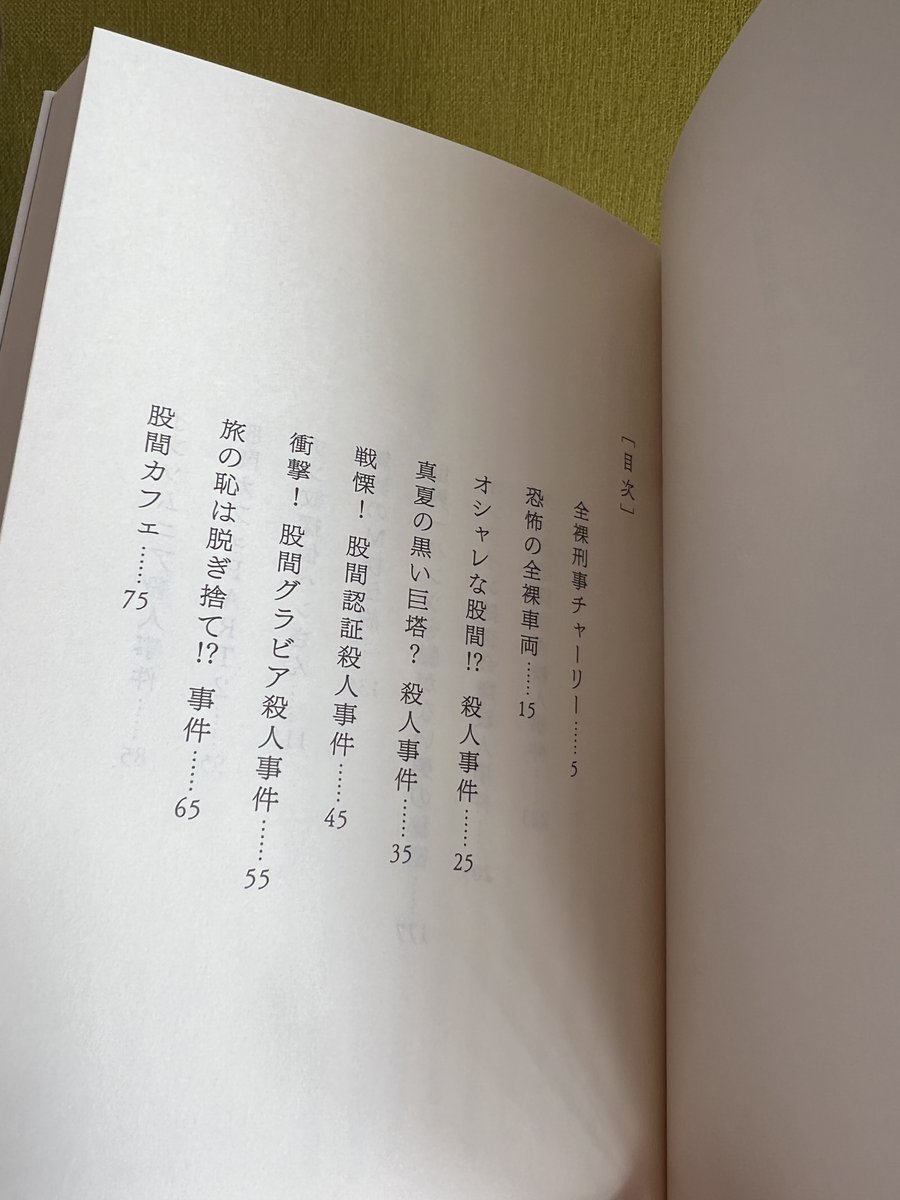 ［目次］
全裸刑事チャーリー……5
恐怖の全裸車両……15
オシャレな股間!? 殺人事件……25
真夏の黒い巨塔？ 殺人事件……35
戦慄！ 股間認証殺人事件……45
衝撃！ 股間グラビア殺人事件……55
旅の恥は脱ぎ捨て!? 事件……65
股間カフェ……75